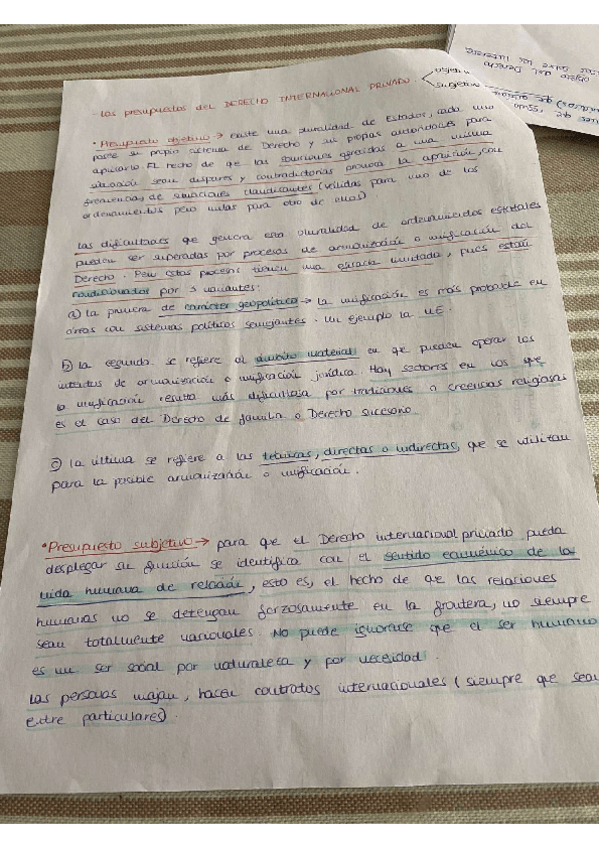 - Los presupuestos del DERECHO INTERNACIONAL PRIVADO.
objetivo
subjetivo
• Presupuesto objetivo → existe una pluralidad de Estados, cada uno
posee su propio sistema de Derecho y sus propias autoridades para
aplicarlo. El hecho de que las soluciones ofrecidas a una misma
situación sean dispares y contradictorias provoca la aparición, con
frecuencia, de situaciones claudicantes (válidas para uno de los
ordenamientos pero nulas para otro de ellos)
Las dificultades que genera esta pluralidad de ordenamientos estatales
pueden ser superadas por procesos de armonización o unificación del
Derecho. Pero estos procesos tienen una eficacia limitada, pues están
condicionados por 3 variantes:
a) la primera de carácter geopolítico → la unificación es más probable en
otras con sistemas políticos semejantes. Un ejemplo la UE.
b) la segunda se refiere al ámbito material en que pueden operar los
intentos de armonización o unificación jurídica. Hay sectores en los que
la unificación resulta más dificultosa por tradiciones o creencias religiosas
es el caso del Derecho de familia o Derecho sucesorio.
c) la última se refiere a las técnicas, directas o indirectas, que se utilizan
para la posible armonización o unificación.
• Presupuesto subjetivo → para que el Derecho internacional privado pueda
desplegar su función se identifica con el sentido ecuménico de la
vida humana de relación, esto es, el hecho de que las relaciones
humanas no se detengan forzosamente en la frontera, no siempre
sean totalmente nacionales. No puede ignorarse que el ser humano
es un ser social por naturaleza y por necesidad.
Las personas viajan, hacen contratos internacionales (siempre que sean
entre particulares).